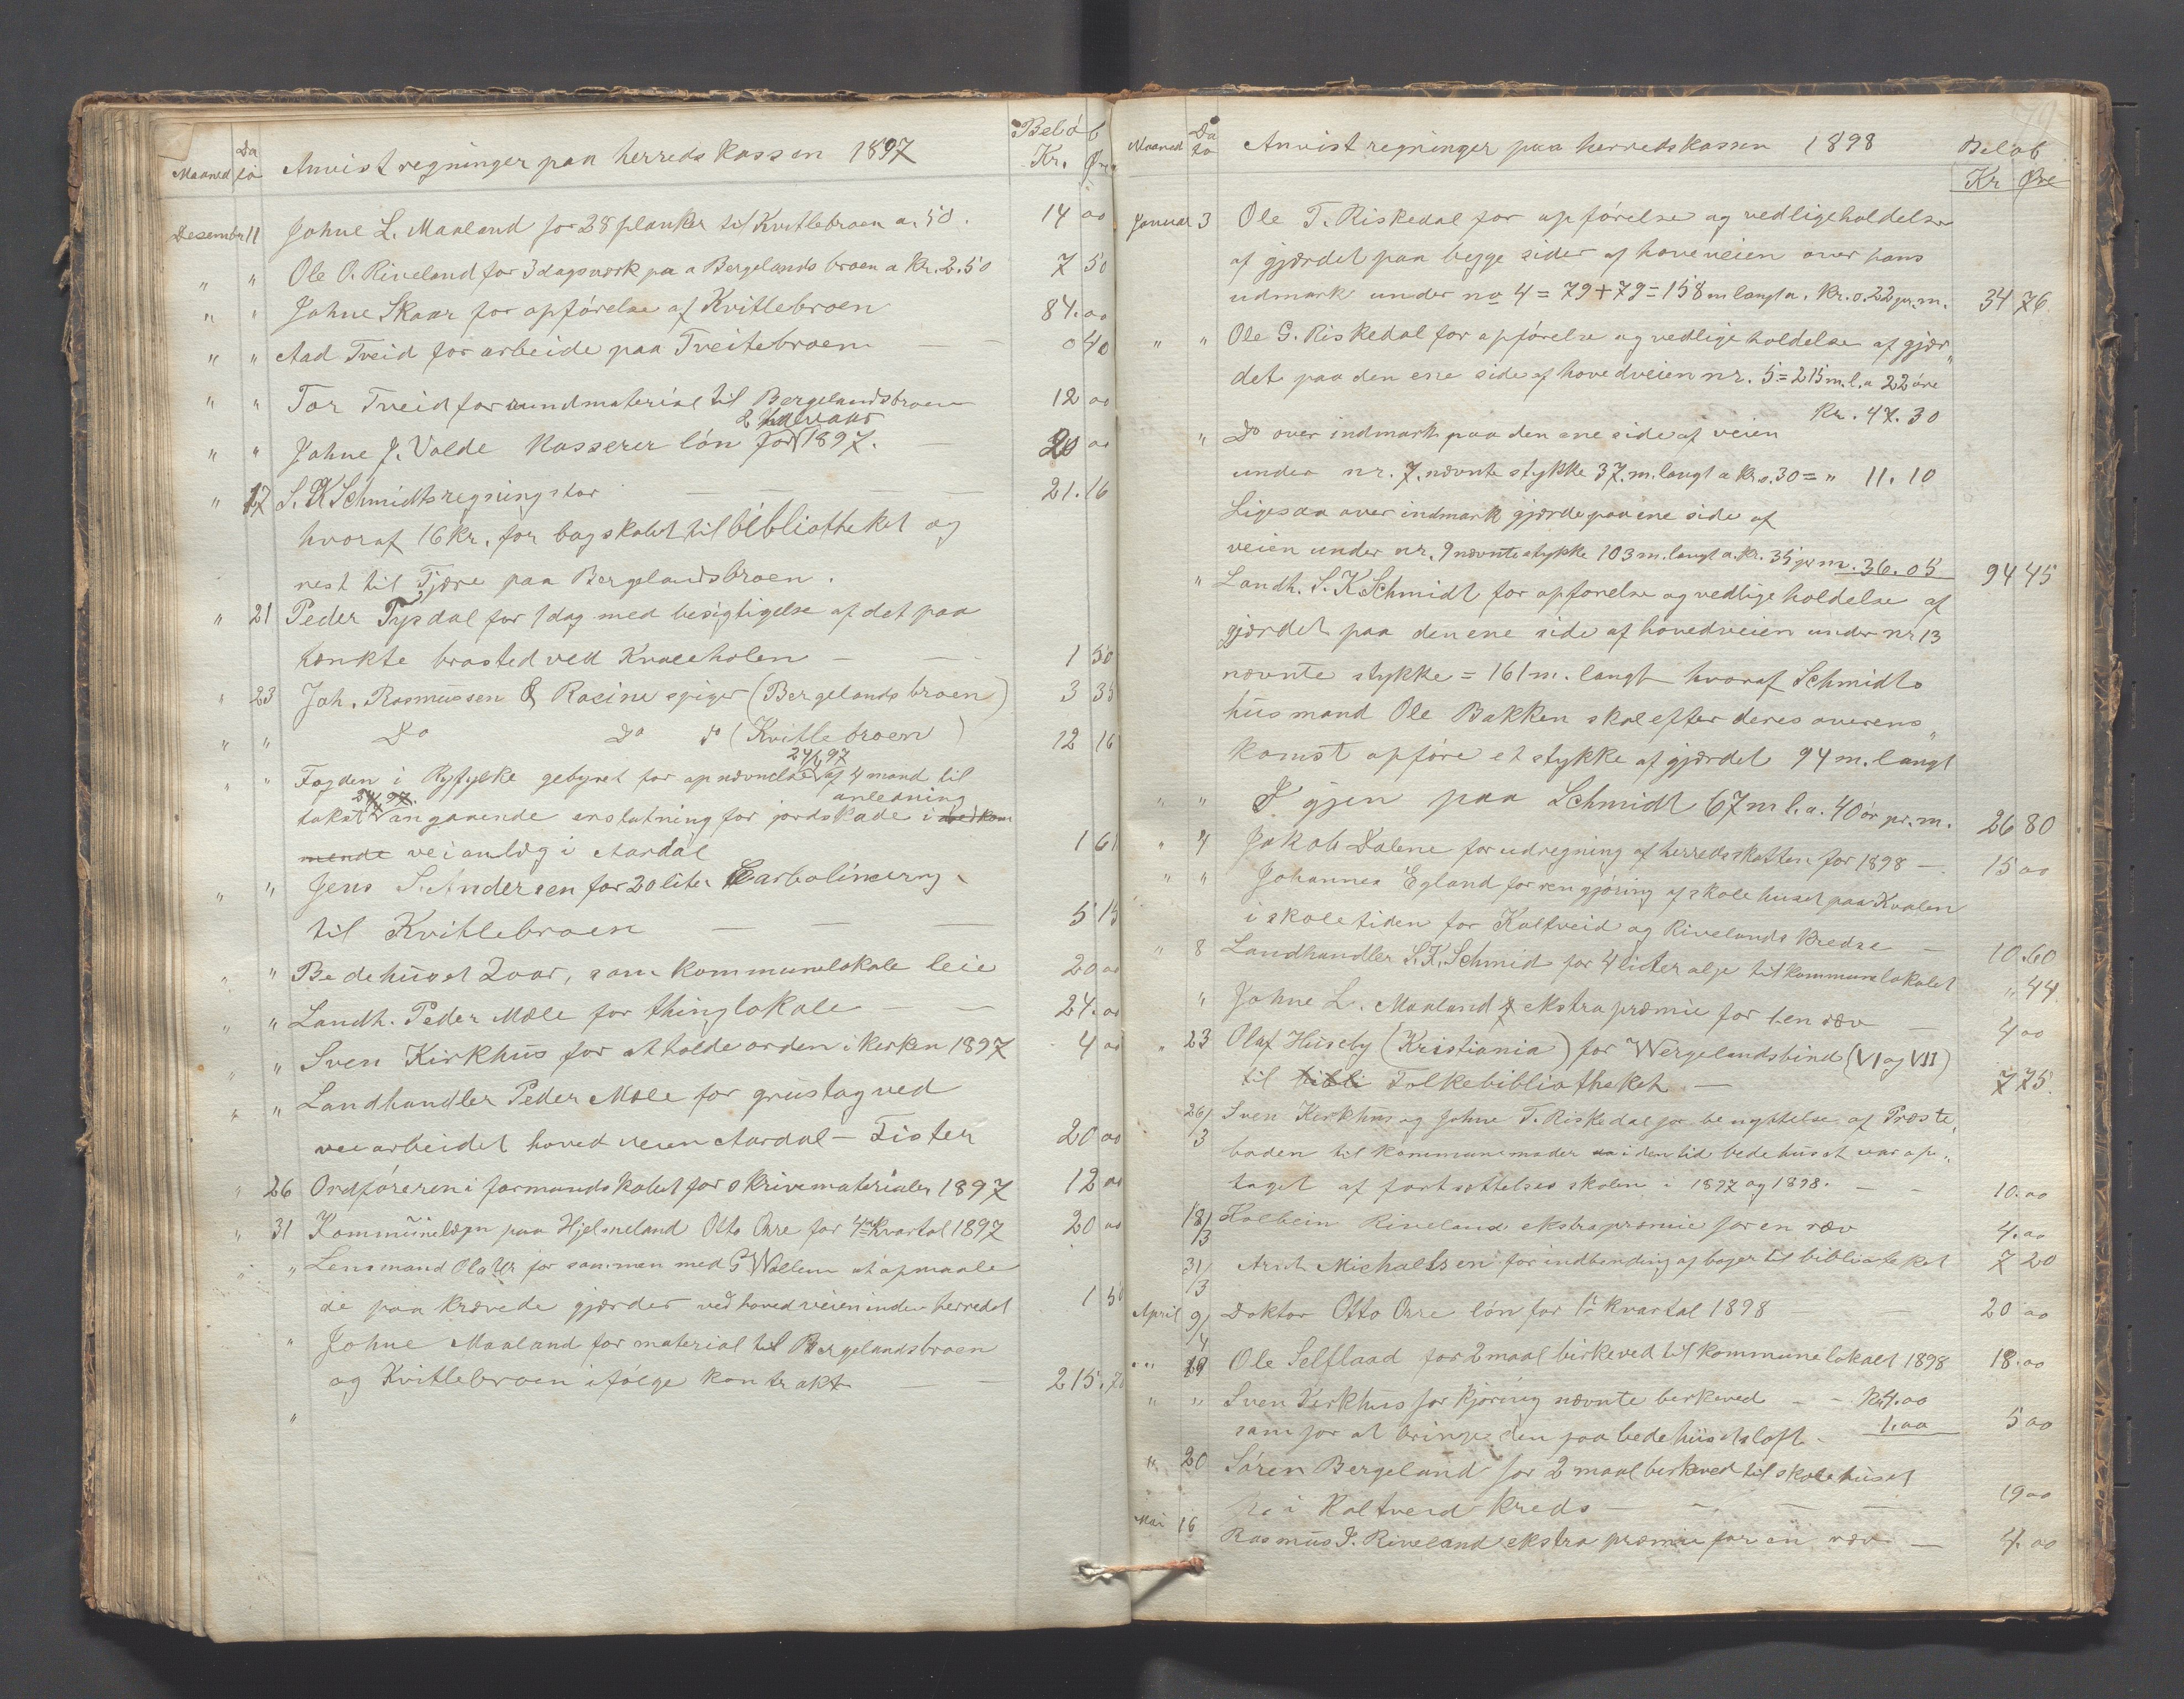 Maaned Da to Anvist regninger paa herredskassen 1897 Beløb Kr. Øre
Desember 11 Johne L. Maaland for 28 planker til Kvitlebroen a. 50. 14 00
" " Ole O. Riveland for 3 dagsverk paa Bergelands broen a Kr. 2.50 7 50
" " Johne Skaar for opførelse af Kvitlebroen 84.00
" " Aad Tveid for arbeide paa Tveitebroen — — 0 40
" " Tor Tveid for rundmaterial til Bergelandsbroen 12 00
2 halvaar
" " Johne J. Valde kasserer løn for 1897. — 20 00
" 17 S. K Schmidts regning stor — — — — 21.16
hvoraf 16 kr. for bogskabet til bibliotheket og
rest til Tjære paa Bergelandsbroen.
" 21 Peder Tysdal for 1 dag med besigtigelse af det paa
tænkte brosted ved Kvaleholen — — 1 50
" 23 Joh. Rasmussen & Racine spiger (Bergelands broen) 3 35
" " Do Do do (Kvitlebroen) 12 16
24/4 97
" " Fogden i Ryfylke gebyret for opnævnelse af 4 mand til
24/4 97. anledning
takst angaaende erstatning for jordskade i ved kom
mende veianlæg i Aardal 1 61
" " Jens S. Andersen for 20 liter Carbolineum
til Kvitlebroen — — — 5 15
" " Bedehuset Zoar, som kommunelokale leie 20 00
" " Landh. Peder Mæle for thinglokale — — 24.00
" " Sven Kirkhus for at holde orden i kirken 1897 4 00
" " Landhandler Peder Mæle for grustag ved
veiarbeidet hovedveien Aardal – Fister 20 00
" 26 Ordføreren i formandskabet for skrivematerialer 1897 12 00
" 31 Kommunelægen paa Hjelmeland Otto Orre for 4de Kvartal 1897 20 00
" " Lensmand Ola Ur for sammen med G Wallem at opmaale
de paa krævede gjærder ved hovedveien inden herredet 1 50
" Johne Maaland for material til Bergelandsbroen
og Kvitlebroen ifølge kontrakt — — 215.70
"
79
Maaned Da to Anvist regninger paa herredskassen 1898 Beløb Kr Øre
Januar 3 Ole T. Riskedal for opførelse og vedligeholdelse
af gjærdet paa begge sider af hoveveien over hans
udmark under no 4 = 79 + 79 = 158 m langt a. Kr. 0.22 pr. m. 34 76
" " Ole G. Riskedal for opførelse og vedligeholdelse af gjær„
det paa den ene side af hovedveien nr. 5 = 215 m. l. a 22 øre
Kr. 47.30
" Do over indmark paa den ene side af veien
under nr. 7. nævnte stykke 37. m. langt a Kr 0.30 = " 11.10
Ligesaa over indmark gjærde paa ene side af
veien under nr. 9 nævnte stykke 103 m. langt a. Kr. 35 pr m. 36.05 94 45
" Landh. S. K Schmidt for opførelse og vedligeholdelse af
gjærdet paa den ene side af hovedveien under nr 13
nævnte stykke = 161 m. langt hvoraf Schmidts
husmand Ole Bakken skal efter deres overens„
komst opføre et stykke af gjærdet 94 m. langt
" " I gjen paa Schmidt 67 m l. a. 40 ør pr. m. 26 80
" 4 Jakob Dalene for udregning af herredsskatten for 1898 — 15 00
" " Johannes Egland for rengjøring af skolehuset paa Kvalen
i skoletiden for Kaltveid og Rivelands kredse — 10.60
" 8 Landhandler S. K. Schmid for 4 liter olje til kommunelokalet " 44
" Johne L. Maaland ekstrapræmie for 1 en ræv — 4 00
" 23 Olaf Huseby (Kristiania) for Wergelandsbind (VI og VII)
til bibli Folkebibliotheket — 7 75
26/3 Sven Kirkhus og Johne T. Riskedal for benyttelse af Præste„
boden til kommunemøder da i den tid bedehuset var op„
taget af fortsættelses skolen i 1897 og 1898. — — 10.00
18/3 Holbein Riveland ekstrapræmie for en ræv 4.00
31/3 Arnt Michaelsen for indbinding af bøger til biblioteket 7 20
April 9/4 Doktor Otto Orre løn for 1ste kvartal 1898 — 20 00
" " 19 Ole Selflaad for 2 maal birkeved til kommunelokalet 1898 18.00
" " Sven Kirkhus for kjøring nævnte birkeved — — Kr 4.00
sam for at bringe den paa bedehusetsloft – 1.00 5 00
" 20 Søren Bergeland for 2 maal birkeved til skolehuset
i Kaltveid Kreds — — — — 19 00
Mai 16 Rasmus J. Riveland ekstra præmie for en ræv — 4.00